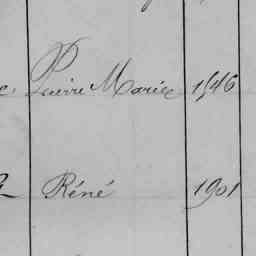 Pierre Marie 1846
Réné 1901